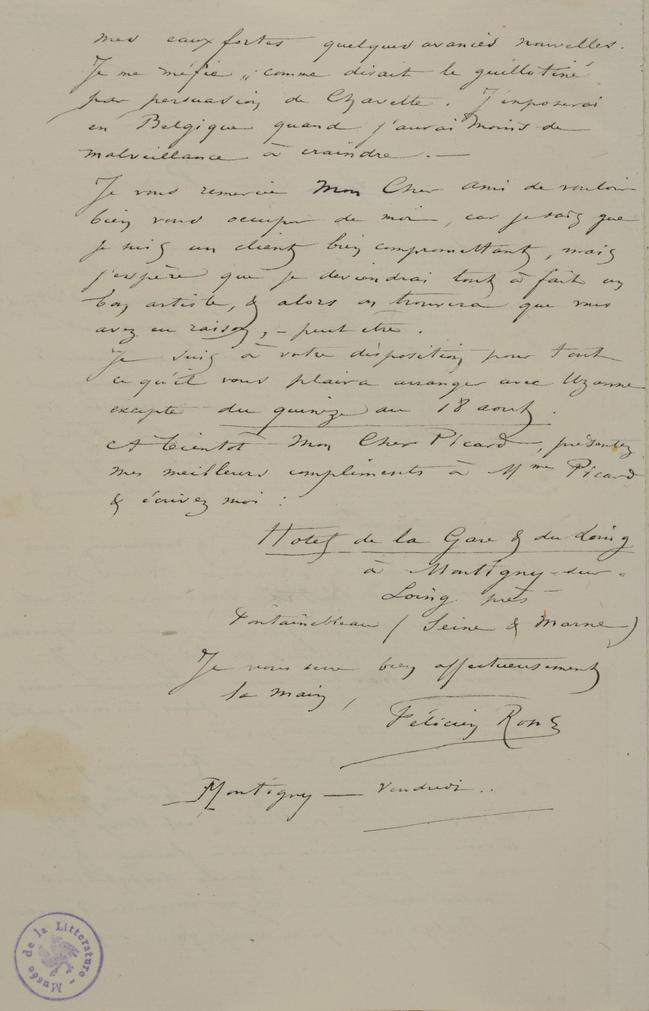 mes eaux fortes quelques avanies nouvelles.
Je me méfie „ comme disait le guillotiné
par persuasion de Chavette. J'exposerai
en Belgique quand j'aurai moins de
malveillance à craindre. —
Je vous remercie Mon Cher ami de vouloir
bien vous occuper de moi, car je sais que
je suis un client bien compromettant, mais
j'espère que je deviendrai tout à fait un
bon artiste, & alors on trouvera que vous
avez eu raison, – peut etre.
Je suis à votre disposition pour tout
ce qu'il vous plaira arranger avec Uzanne
excepté du quinze au 18 aout.
A bientôt Mon Cher Picard, présentez
mes meilleurs compliments à Mme Picard
& écrivez moi :
Hotel de la Gare & du Loing
à Montigny-sur-
Loing près
Fontainebleau (Seine & Marne)
Je vous serre bien affectueusement
la main,
Félicien Rops
Montigny — Vendredi..
Musée de la Littérature